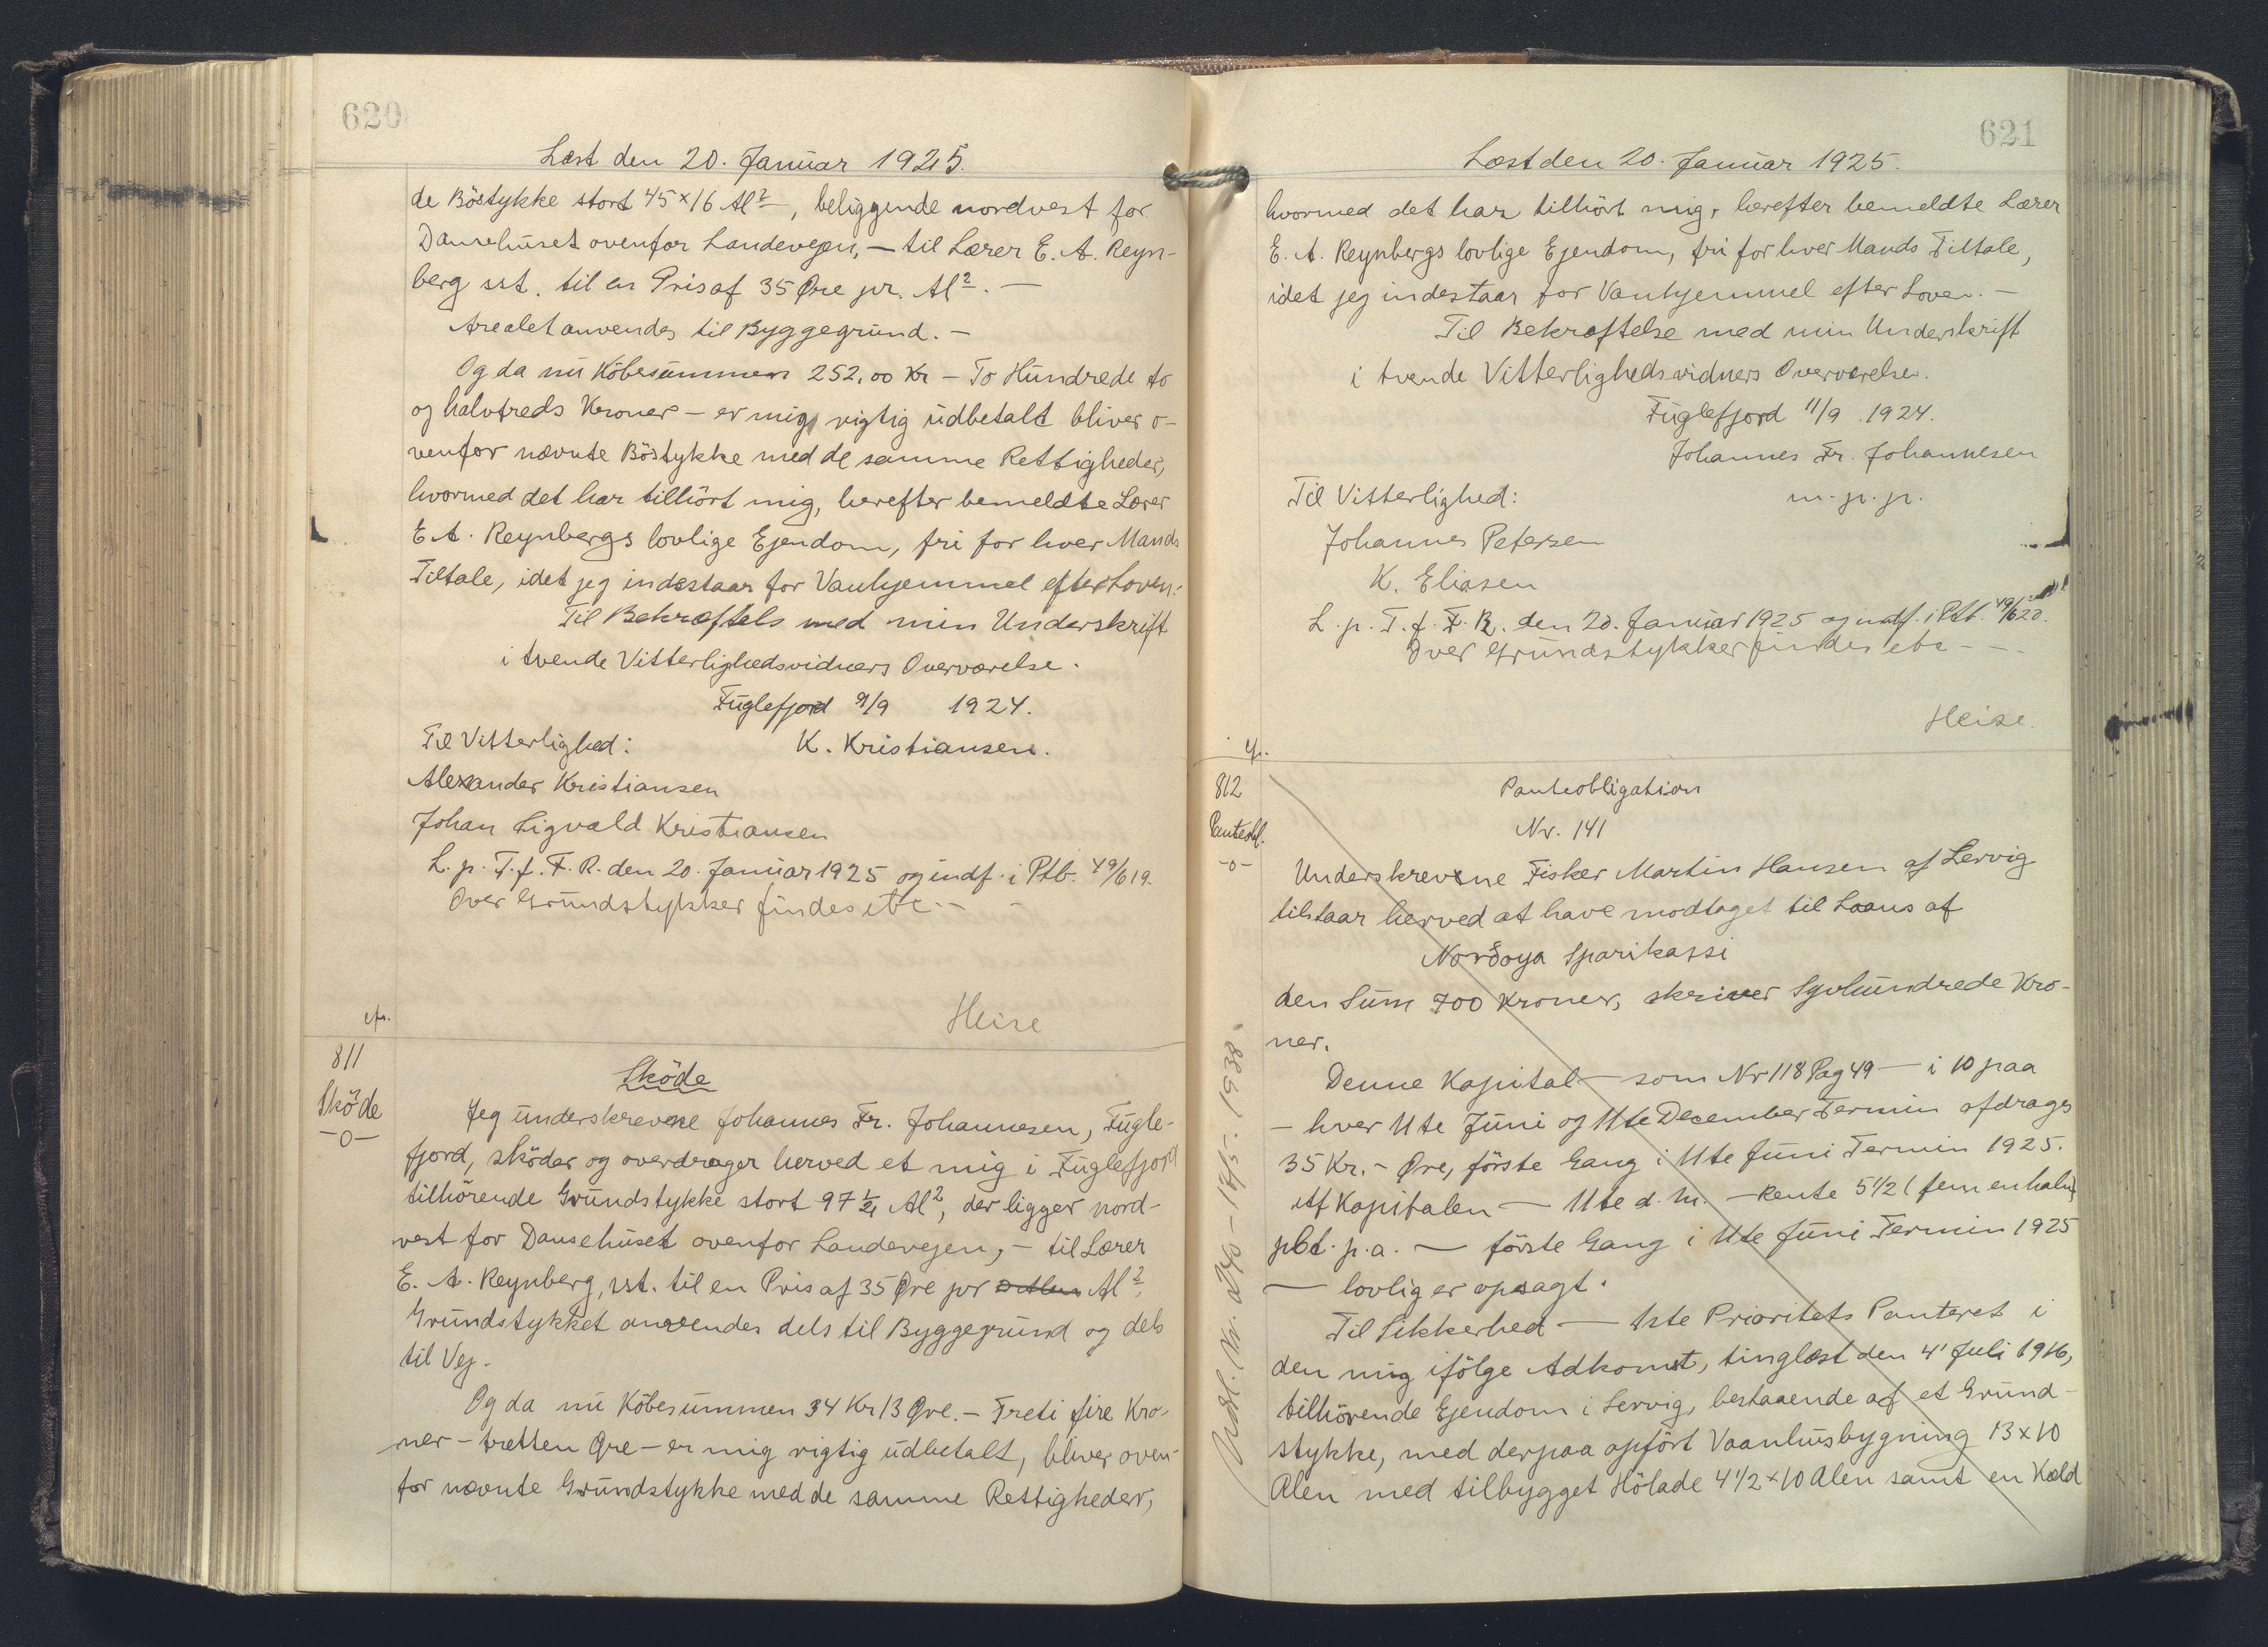 620
Læst den 20. Januar 1925.
de Böstykke stort 45×16 Al², beliggende nordvest for
Dansehuset ovenfor Landevejen, — til Lærer E. A. Reyn-
berg sst. til en Pris af 35 Øre pr. Al². —
Arealet anvendes til Byggegrund. —
Og da nu Köbesummen 252,00 Kr — To Hundrede to
og halvtreds Kroner — er mig rigtig udbetalt bliver o-
venfor nævnte Böstykke med de samme Rettigheder,
hvormed det har tilhört mig, herefter bemeldte Lærer
E A. Reynbergs lovlige Ejendom, fri for hver Mands
Tiltale, idet jeg indestaar for Vanhjemmel efter Loven.
Til Bekræftels med min Underskrift
i tvende Vitterlighedsvidners Overværelse.
Fuglefjord 9/9 1924.
Til Vitterlighed: K. Kristiansen.
Alexander Kristiansen
Johan Sigvald Kristiansen
L. p. T. f. F. R. den 20. Januar 1925 og indf. i Ptb. 49/619.
Over Grundstykker findes etc. — -
Heise
811
Sköde
—o—
Sköde
Jeg underskrevne Johannes Fr. Johannesen, Fugle-
fjord, sköder og overdrager herved et mig i Fuglefjord
tilhörende Grundstykke stort 97 ½ Al², der ligger nord-
vest for Dansehuset ovenfor Landevejen, — til Lærer
E. A. Reynberg, sst. til en Pris af 35 Øre pr Al².
Grundstykket anvendes dels til Byggegrund og dels
til Vej.
Og da nu Köbesummen 34 Kr 13 Øre. — Treti fire Kro-
ner — tretten Øre — er mig rigtig udbetalt, bliver oven-
for nævnte Grundstykke med de samme Rettigheder,
621
Læst den 20. Januar 1925.
hvormed det har tilhört mig, herefter bemeldte Lærer
E. A. Reynbergs lovlige Ejendom, fri for hver Mands Tiltale,
idet jeg indestaar for Vanhjemmel efter Loven. —
Til Bekræftelse med min Underskrift
i tvende Vitterlighedsvidners Overværelse.
Fuglefjord 11/9 . 1924.
Johannes Fr. Johannesen
Til Vitterlighed: m. p. p.
Johannes Petersen
K. Eliasen
L. p. T. f. F. R. den 20. Januar 1925 og indf. i Ptb. 49/620.
Over Grundstykker findes etc - — -
Heise.
812
Panteobl.
-o-
Panteobligation
Nr. 141
Underskrevne Fisker Martin Hansen af Lervig
tilstaar herved at have modtaget til Laans af
Norðoya Sparikassi
den Sum 700 Kroner, skriver Syvhundrede Kro-
ner.
Denne Kapital — som Nr 118 Pag 49 — i 10 paa
— hver 11te Juni og 11te December Termin afdrages
35 Kr. - Øre, förste Gang i 11te Juni Termin 1925.
Af Kapitalen — 11te d. M. — Rente 5 1/2 (fem en halv)
pCt. p.a. — förste Gang i 11te Juni Termin 1925
— lovlig er opsagt.
Til Sikkerhed — 1ste Prioritets Panteret i
den mig ifölge Adkomst, tinglæst den 4' Juli 1916,
tilhörende Ejendom i Lervig, bestaaende af et Grund-
stykke, med derpaa opfört Vaanhusbygning 13×10
Alen med tilbygget Hölade 4 1/2×10 Alen samt en Kæld